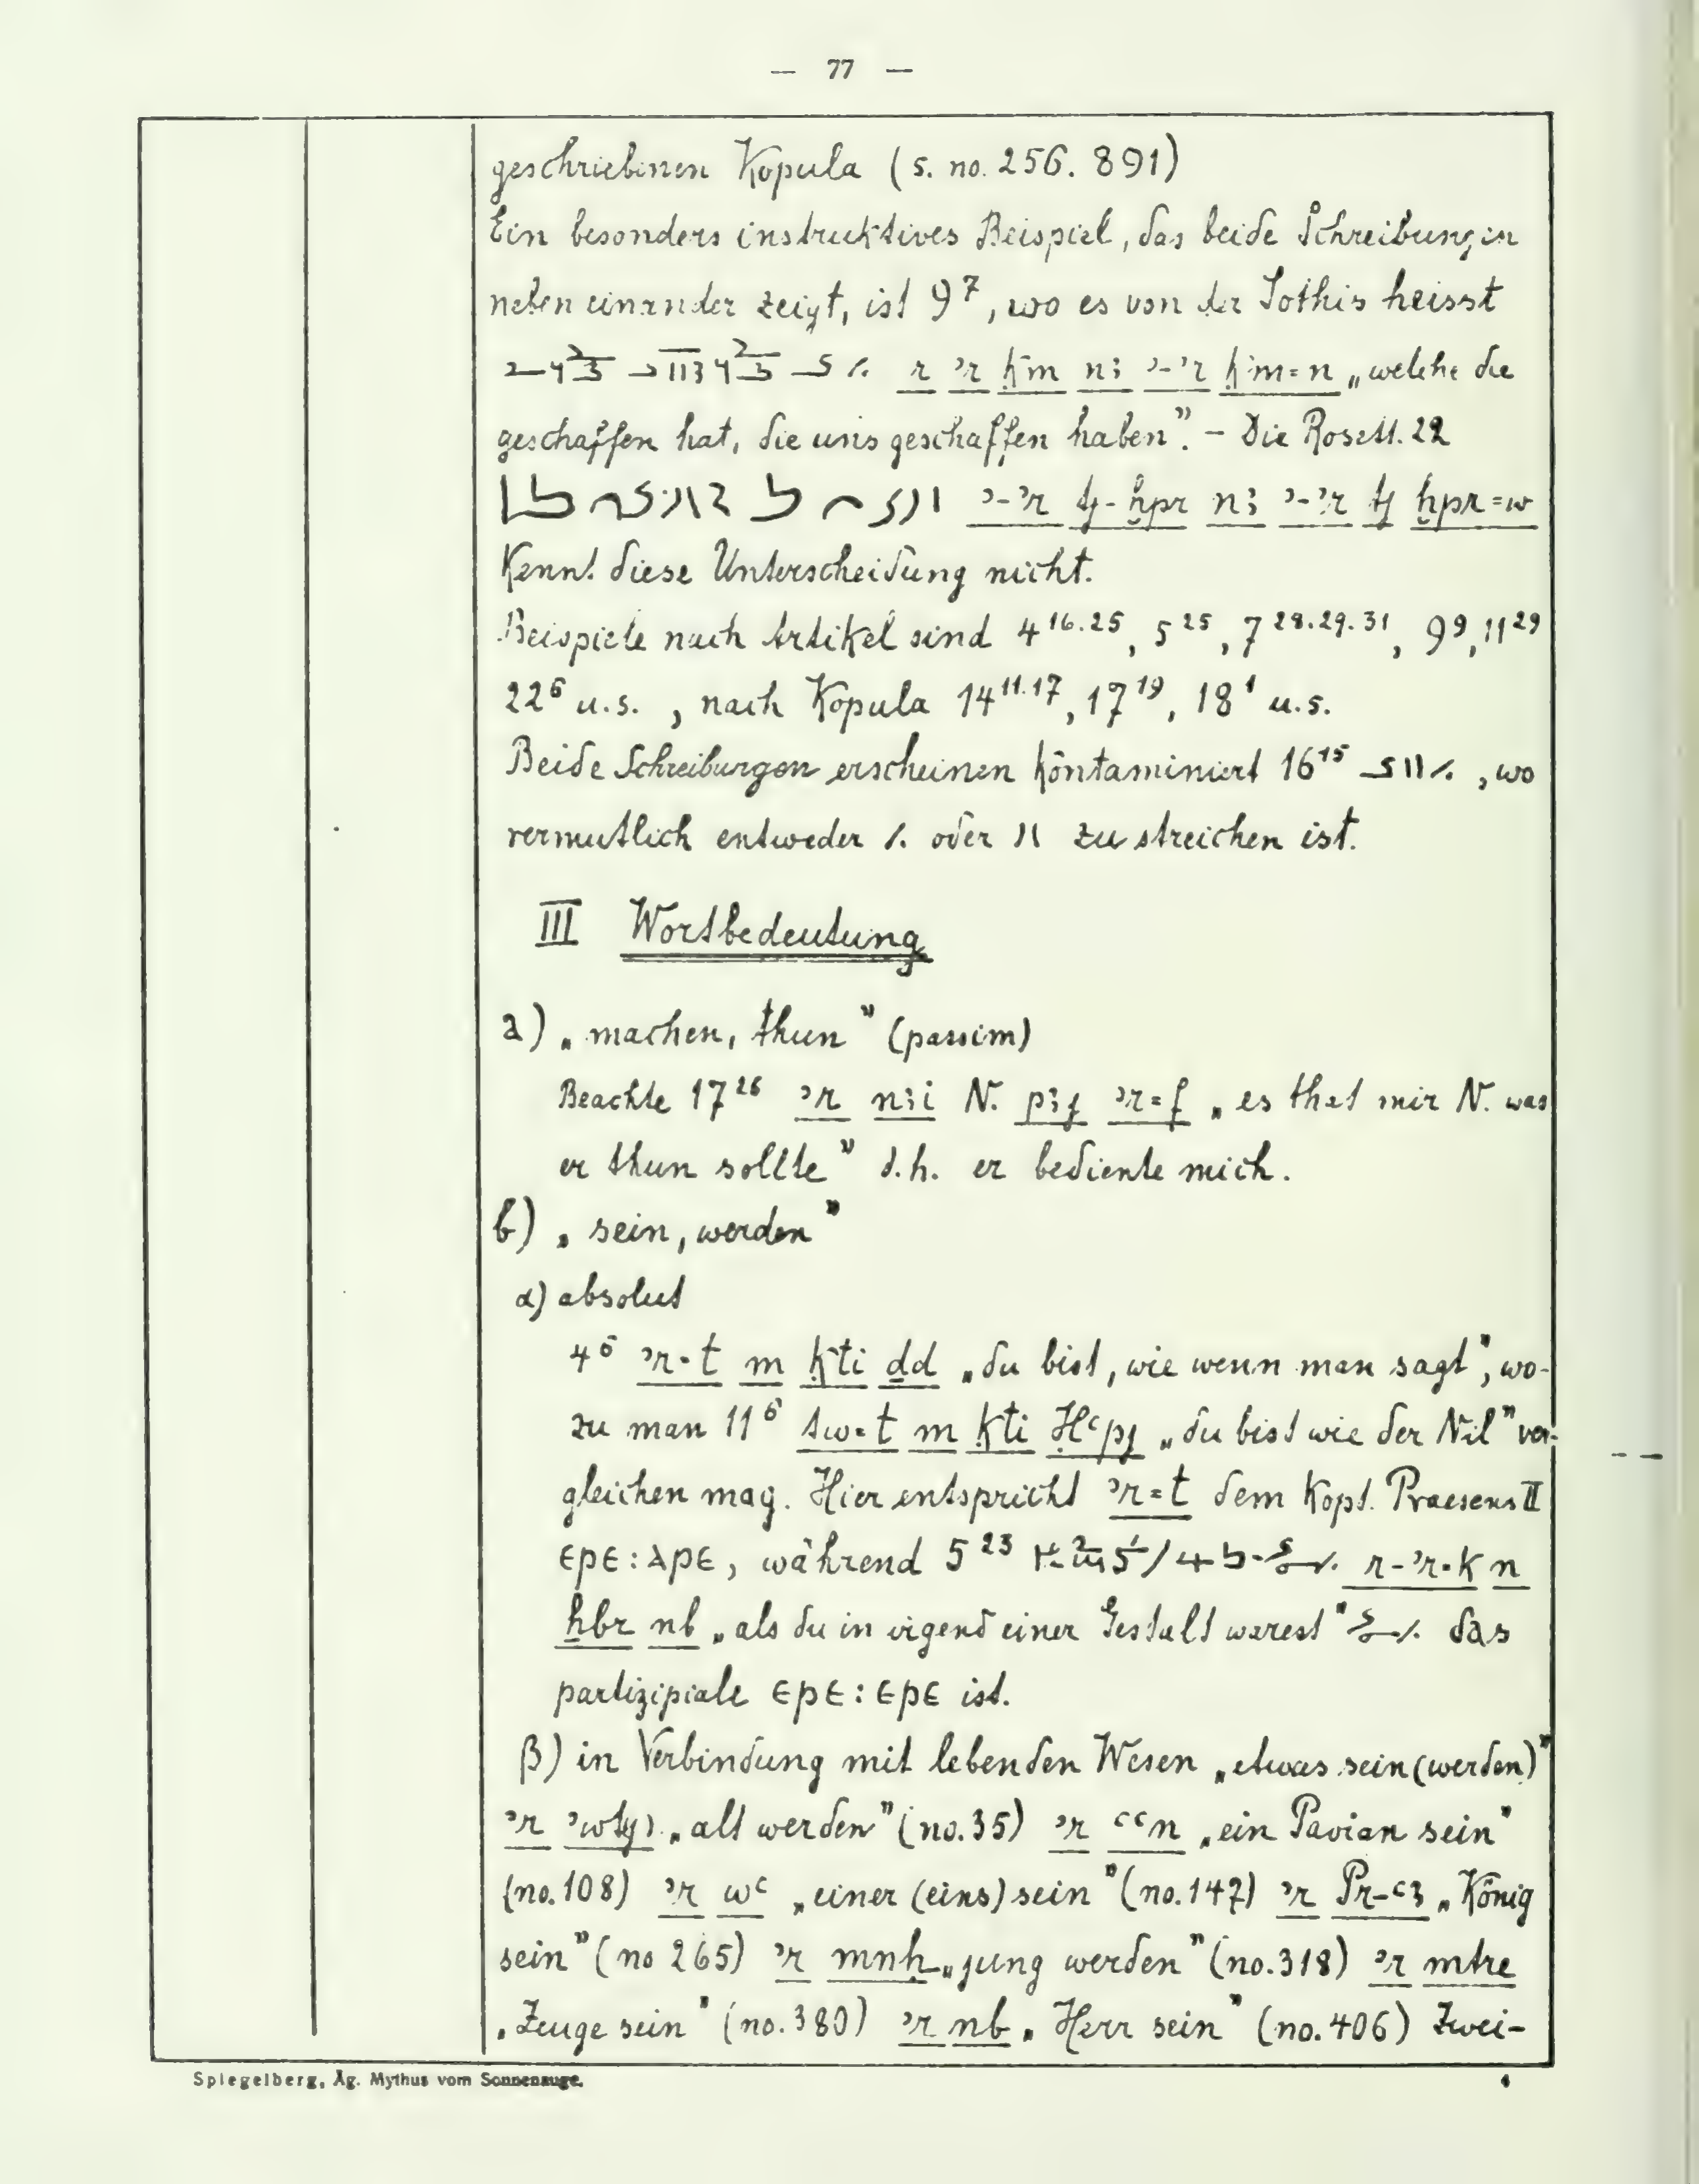 — 77 —
geschriebenen Kopula (s. no. 256. 891)
Ein besonders instruktives Beispiel, das beide Schreibungen
neben einander zeigt, ist 9⁷, wo es von der Sothis heisst
r ꜥr ḳm nꜣ ꜣ-ꜥr ḳm=n „welche die
geschaffen hat, die uns geschaffen haben". – Die Rosett. 22
ꜣ-ꜥr tj-ḫpr nꜣ ꜣ-ꜥr tj ḫpr=w
kennt diese Unterscheidung nicht.
Beispiele nach Artikel sind 4¹⁶·²⁵, 5²⁵, 7²⁸·²⁹·³¹, 9⁹, 11²⁹
22⁶ u.s., nach Kopula 14¹¹·¹⁷, 17¹⁹, 18¹ u.s.
Beide Schreibungen erscheinen kontaminiert 16¹⁵ , wo
vermutlich entweder oder zu streichen ist.
III Wortbedeutung
a) „machen, thun" (passim)
Beachte 17²⁶ ꜥr nꜣi N. pꜣj ꜥr=f „es that mir N. was
er thun sollte" d.h. er bediente mich.
b) „sein, werden"
α) absolut
4⁶ ꜥr=t m ḳti ḏd „du bist, wie wenn man sagt", wo-
zu man 11⁶ tw=t m ḳti Ḥꜥpj „du bist wie der Nil" ver-
gleichen mag. Hier entspricht ꜥr=t dem kopt. Praesens II
ⲉⲣⲉ : ⲁⲣⲉ, während 5²³ r-ꜥr=k n
ḫbr nb „als du in irgend einer Gestalt warest" das
partizipiale ⲉⲣⲉ : ⲉⲣⲉ ist.
β) in Verbindung mit lebenden Wesen „etwas sein (werden)"
„alt werden" (no. 35) ꜥr ꜥꜥn „ein Pavian sein"
(no. 108) ꜥr wꜥ „einer (eins) sein" (no. 147) ꜥr Pr-ꜥꜣ „König
sein" (no 265) ꜥr mnḫ „jung werden" (no. 318) ꜥr mtre
„Zeuge sein" (no. 380) ꜥr nb „Herr sein" (no. 406) Zwei-
Spiegelberg, Äg. Mythus vom Sonnenauge.